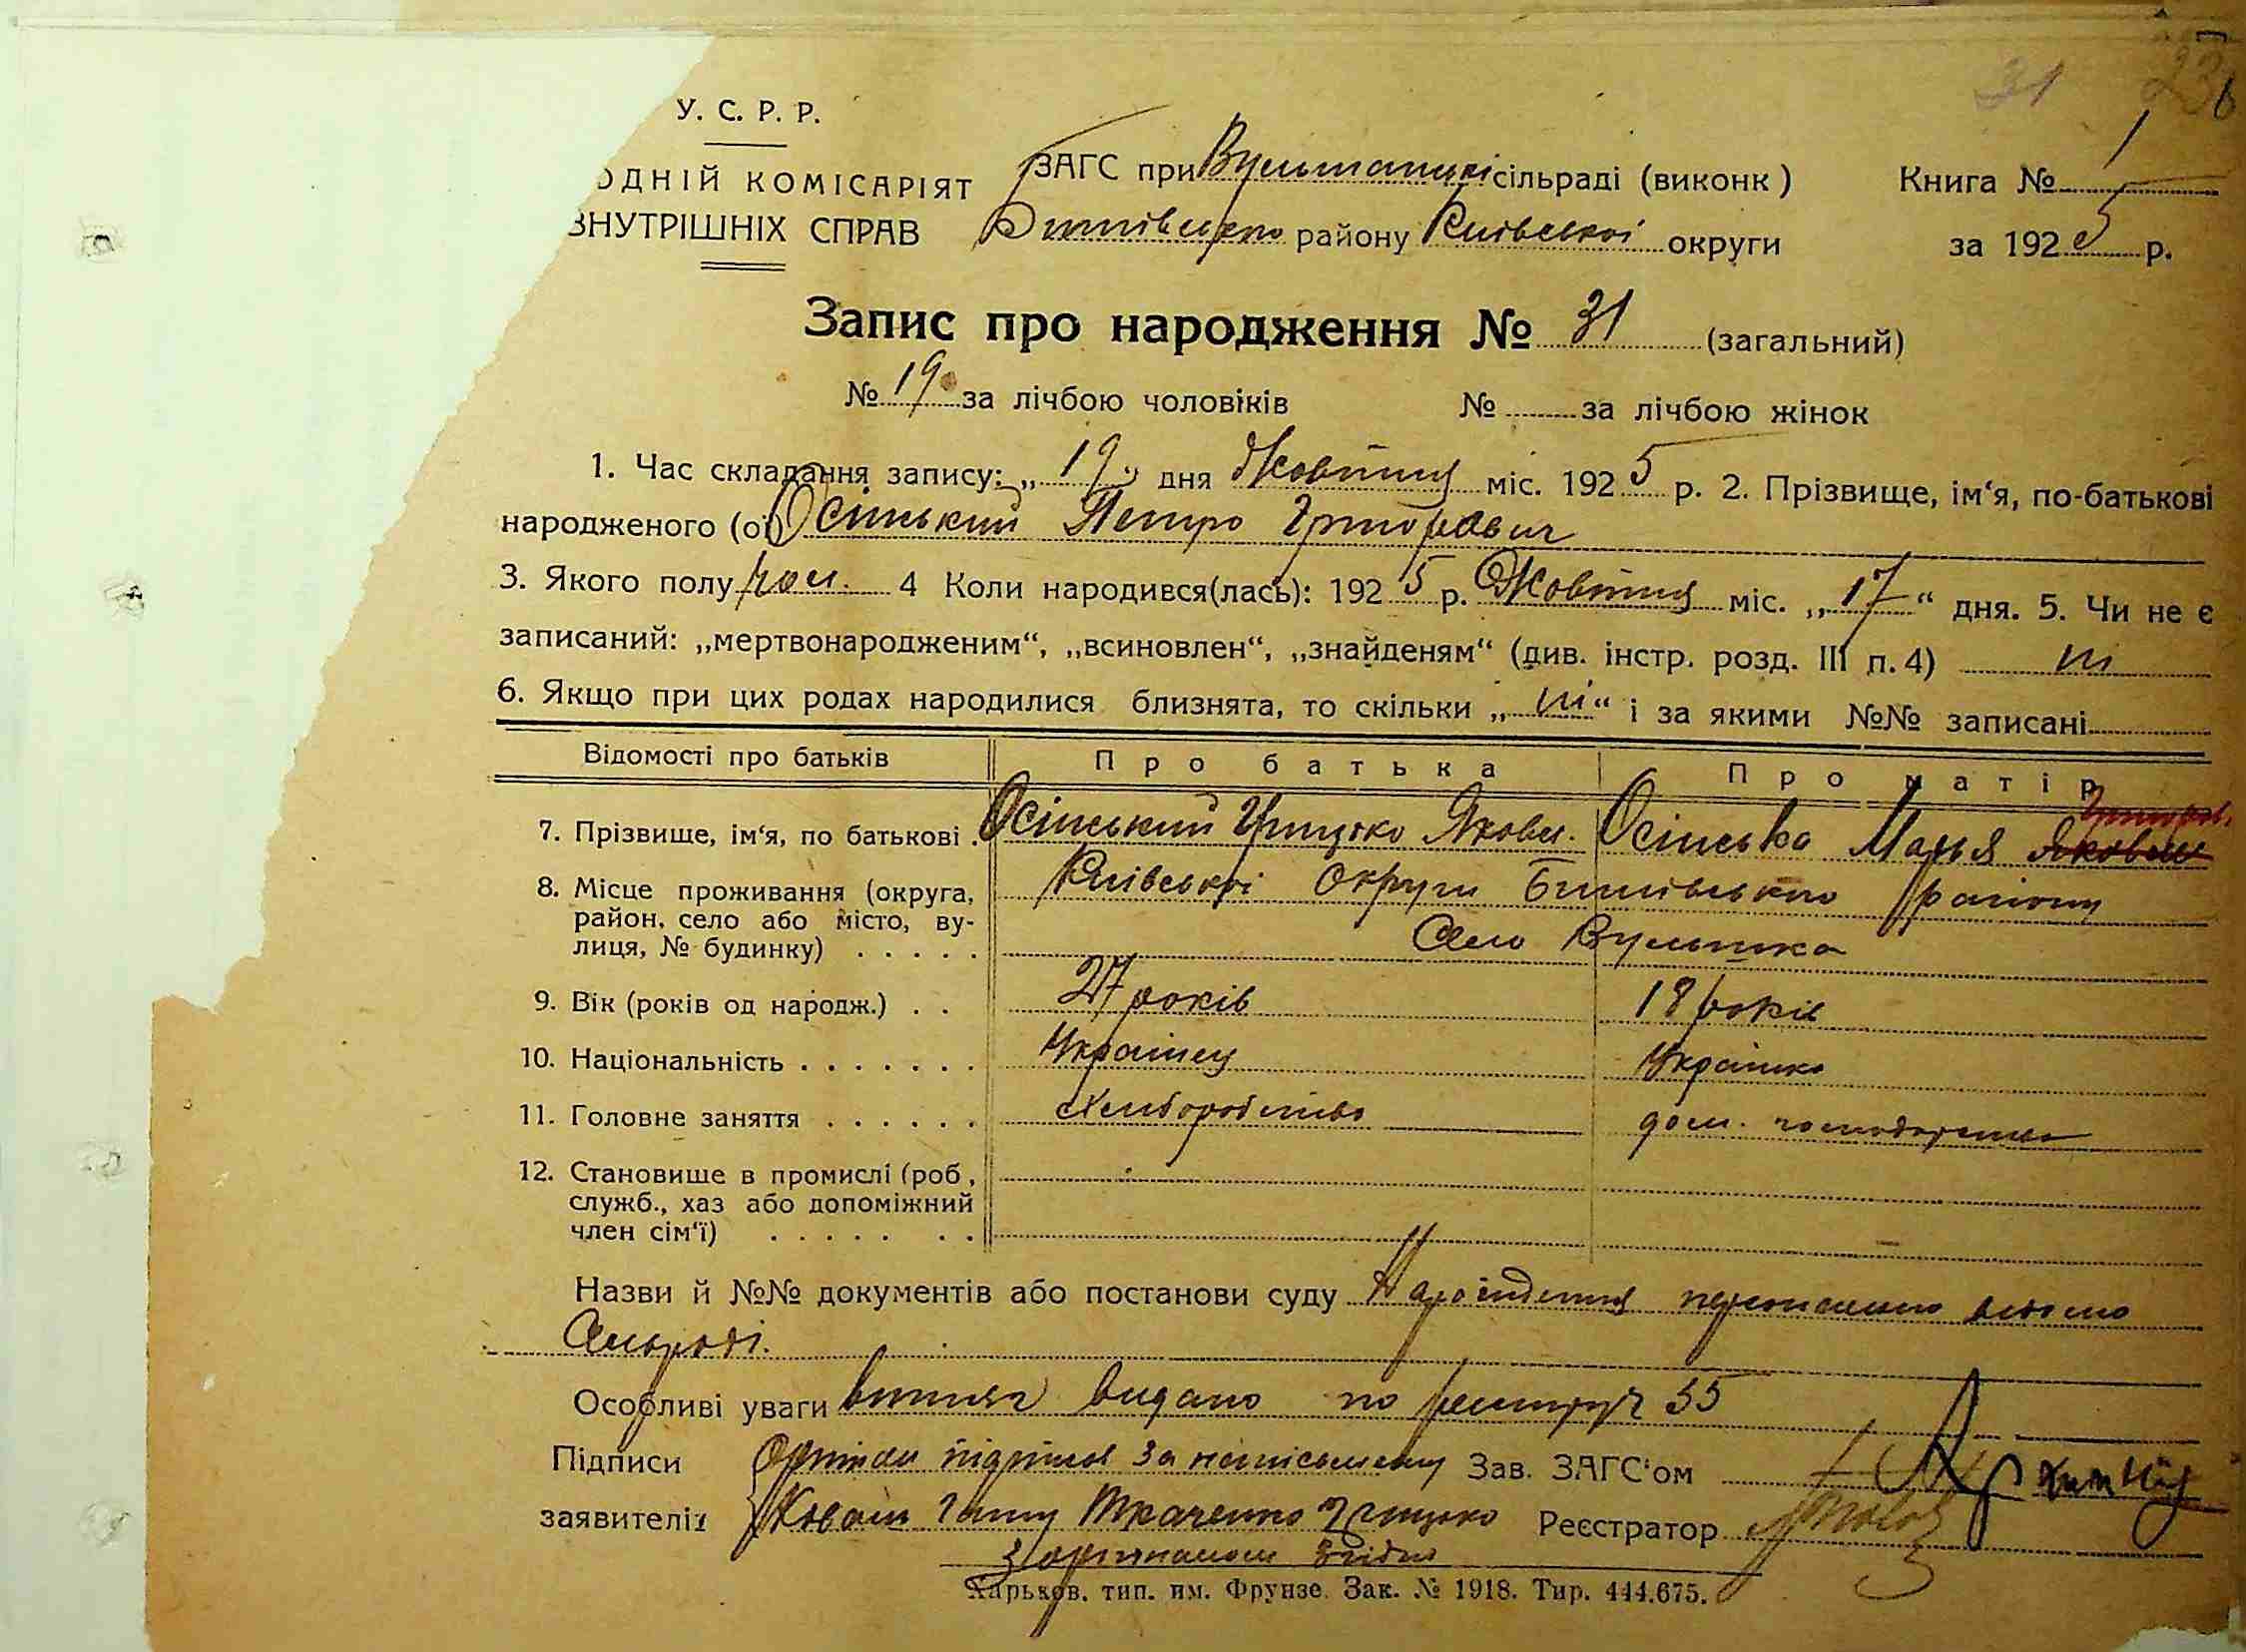 31 23
У. С. Р. Р.
ОДНІЙ КОМІСАРІЯТ
ВНУТРІШНІХ СПРАВ
ЗАГС при сільраді (виконк)
району Київської округи
Книга № 1
за 1925 р.
Запис про народження № 31 (загальний)
№ 19 за лічбою чоловіків № за лічбою жінок
1. Час складання запису: „19" дня Жовтня міс. 1925 р. 2. Прізвище, ім‘я, по-батькові
народженого (ої) Осінський Петро Григорович
3. Якого полу чол. 4 Коли народився(лась): 1925 р. Жовтня міс. „17“ дня. 5. Чи не є
записаний: „мертвонародженим“, „всиновлен“, „знайденям“ (див. інстр. розд. III п. 4) ні
6. Якщо при цих родах народилися близнята, то скільки „ні“ і за якими №№ записані
Відомості про батьків Про батька Про матір
Григор.
7. Прізвище, ім‘я, по батькові . Осінський Грицько Яковл. Осінська Марья Яковл
8. Місце проживання (округа, Київської Округи району
район, село або місто, ву-
лиця, № будинку) . . . . . Село
9. Вік (років од народж.) . . 27 років 18 років
10. Національність . . . . . . . Українец Українка
11. Головне заняття . . . . . . Хлиборобство дом. господарство
12. Становище в промислі (роб,
служб., хаз або допоміжний
член сім‘ї) . . . . . . .
Назви й №№ документів або постанови суду
Сільраді.
Особливі уваги витяг видано по реєстру 35
Підписи за Зав. ЗАГС‘ом
заявителів Ганну Ткаченко Грицько Реєстратор
З оригиналом згідно
Харьков. тип. им. Фрунзе. Зак. № 1918. Тир. 444.675.